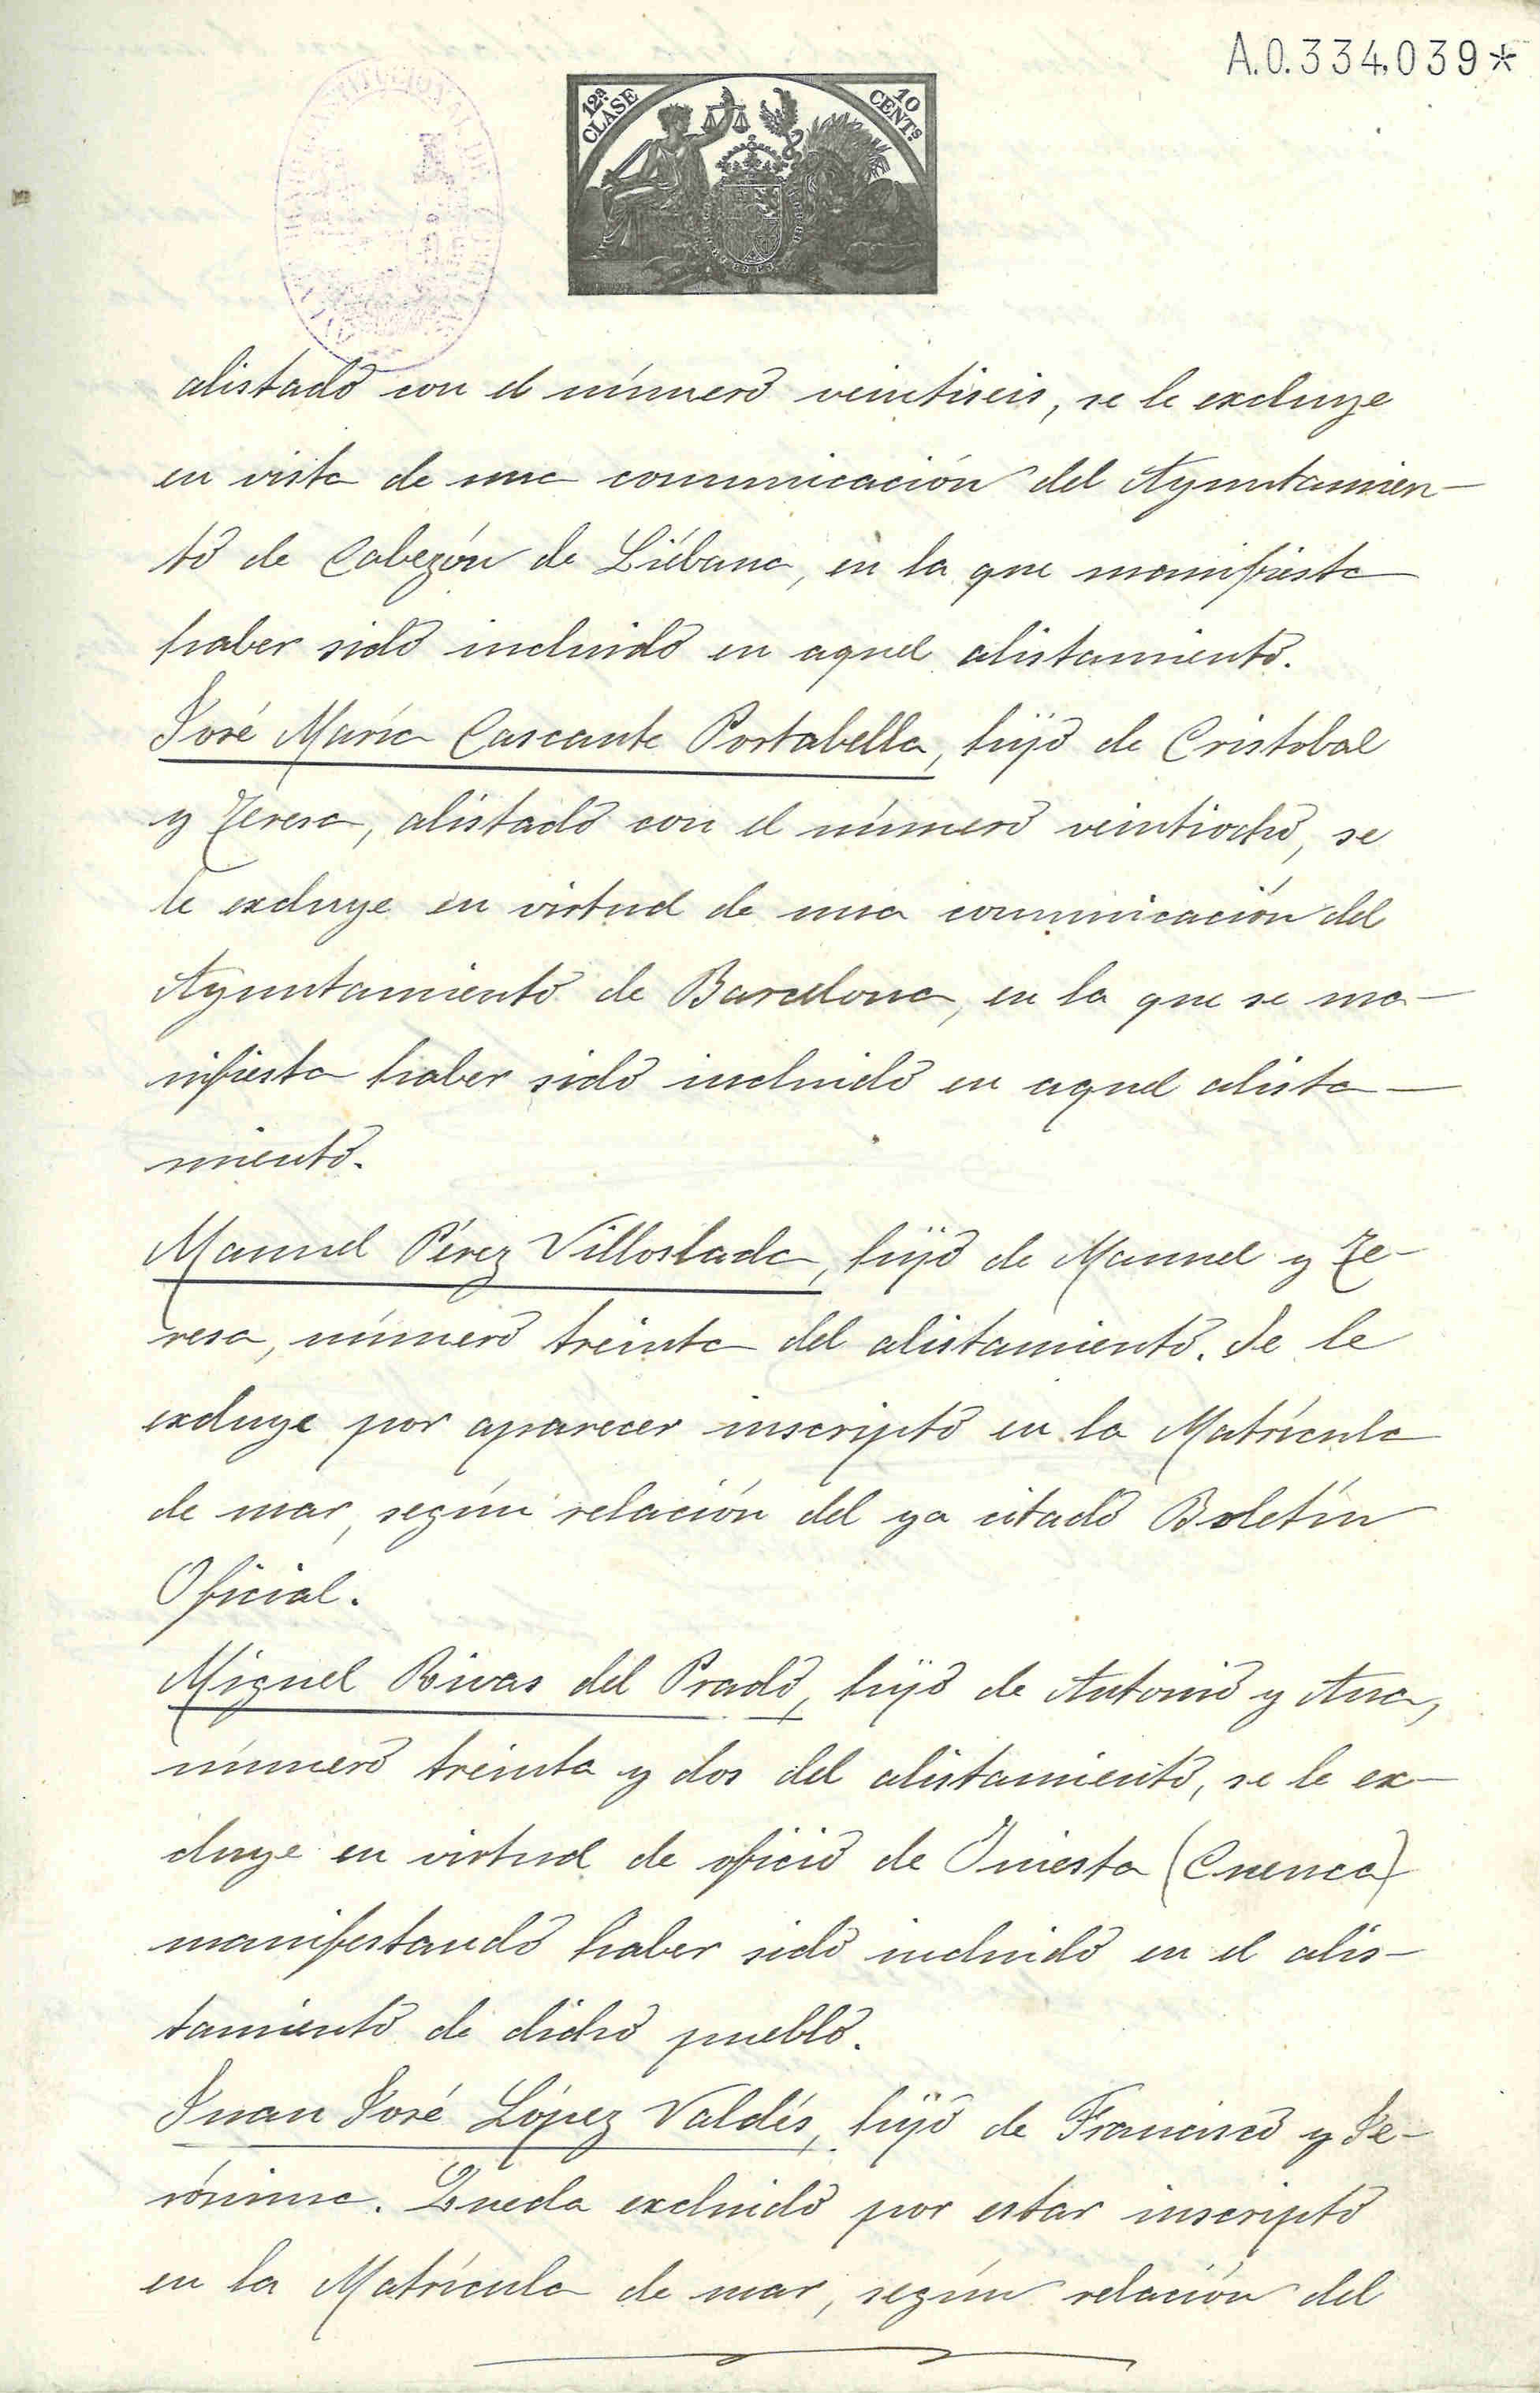 A.0.334,039*
12ª CLASE
10 CENTS
alistado con el número veintiseis, se le excluye
en vista de una comunicación del Ayuntamien-
to de Cabezón de Liébana, en la que manifiesta
haber sido incluido en aquel alistamiento.
José María Cascante Portabella, hijo de Cristobal
y Teresa, alistado con el número veintiocho, se
le excluye en virtud de una comunicación del
Ayuntamiento de Barcelona, en la que se ma-
nifiesta haber sido incluido en aquel alista-
miento.
Manuel Pérez Villoslada, hijo de Manuel y Te-
resa, número treinta del alistamiento. Se le
excluye por aparecer inscripto en la Matrícula
de mar, según relación del ya citado Boletín
Oficial.
Miguel Rivas del Prado, hijo de Antonio y Ana,
número treinta y dos del alistamiento, se le ex-
cluye en virtud de oficio de Iniesta (Cuenca)
manifestando haber sido incluido en el alis-
tamiento de dicho pueblo.
Juan José López Valdés, hijo de Francisco y Je-
rónima. Queda excluido por estar inscripto
en la Matrícula de mar, según relación del